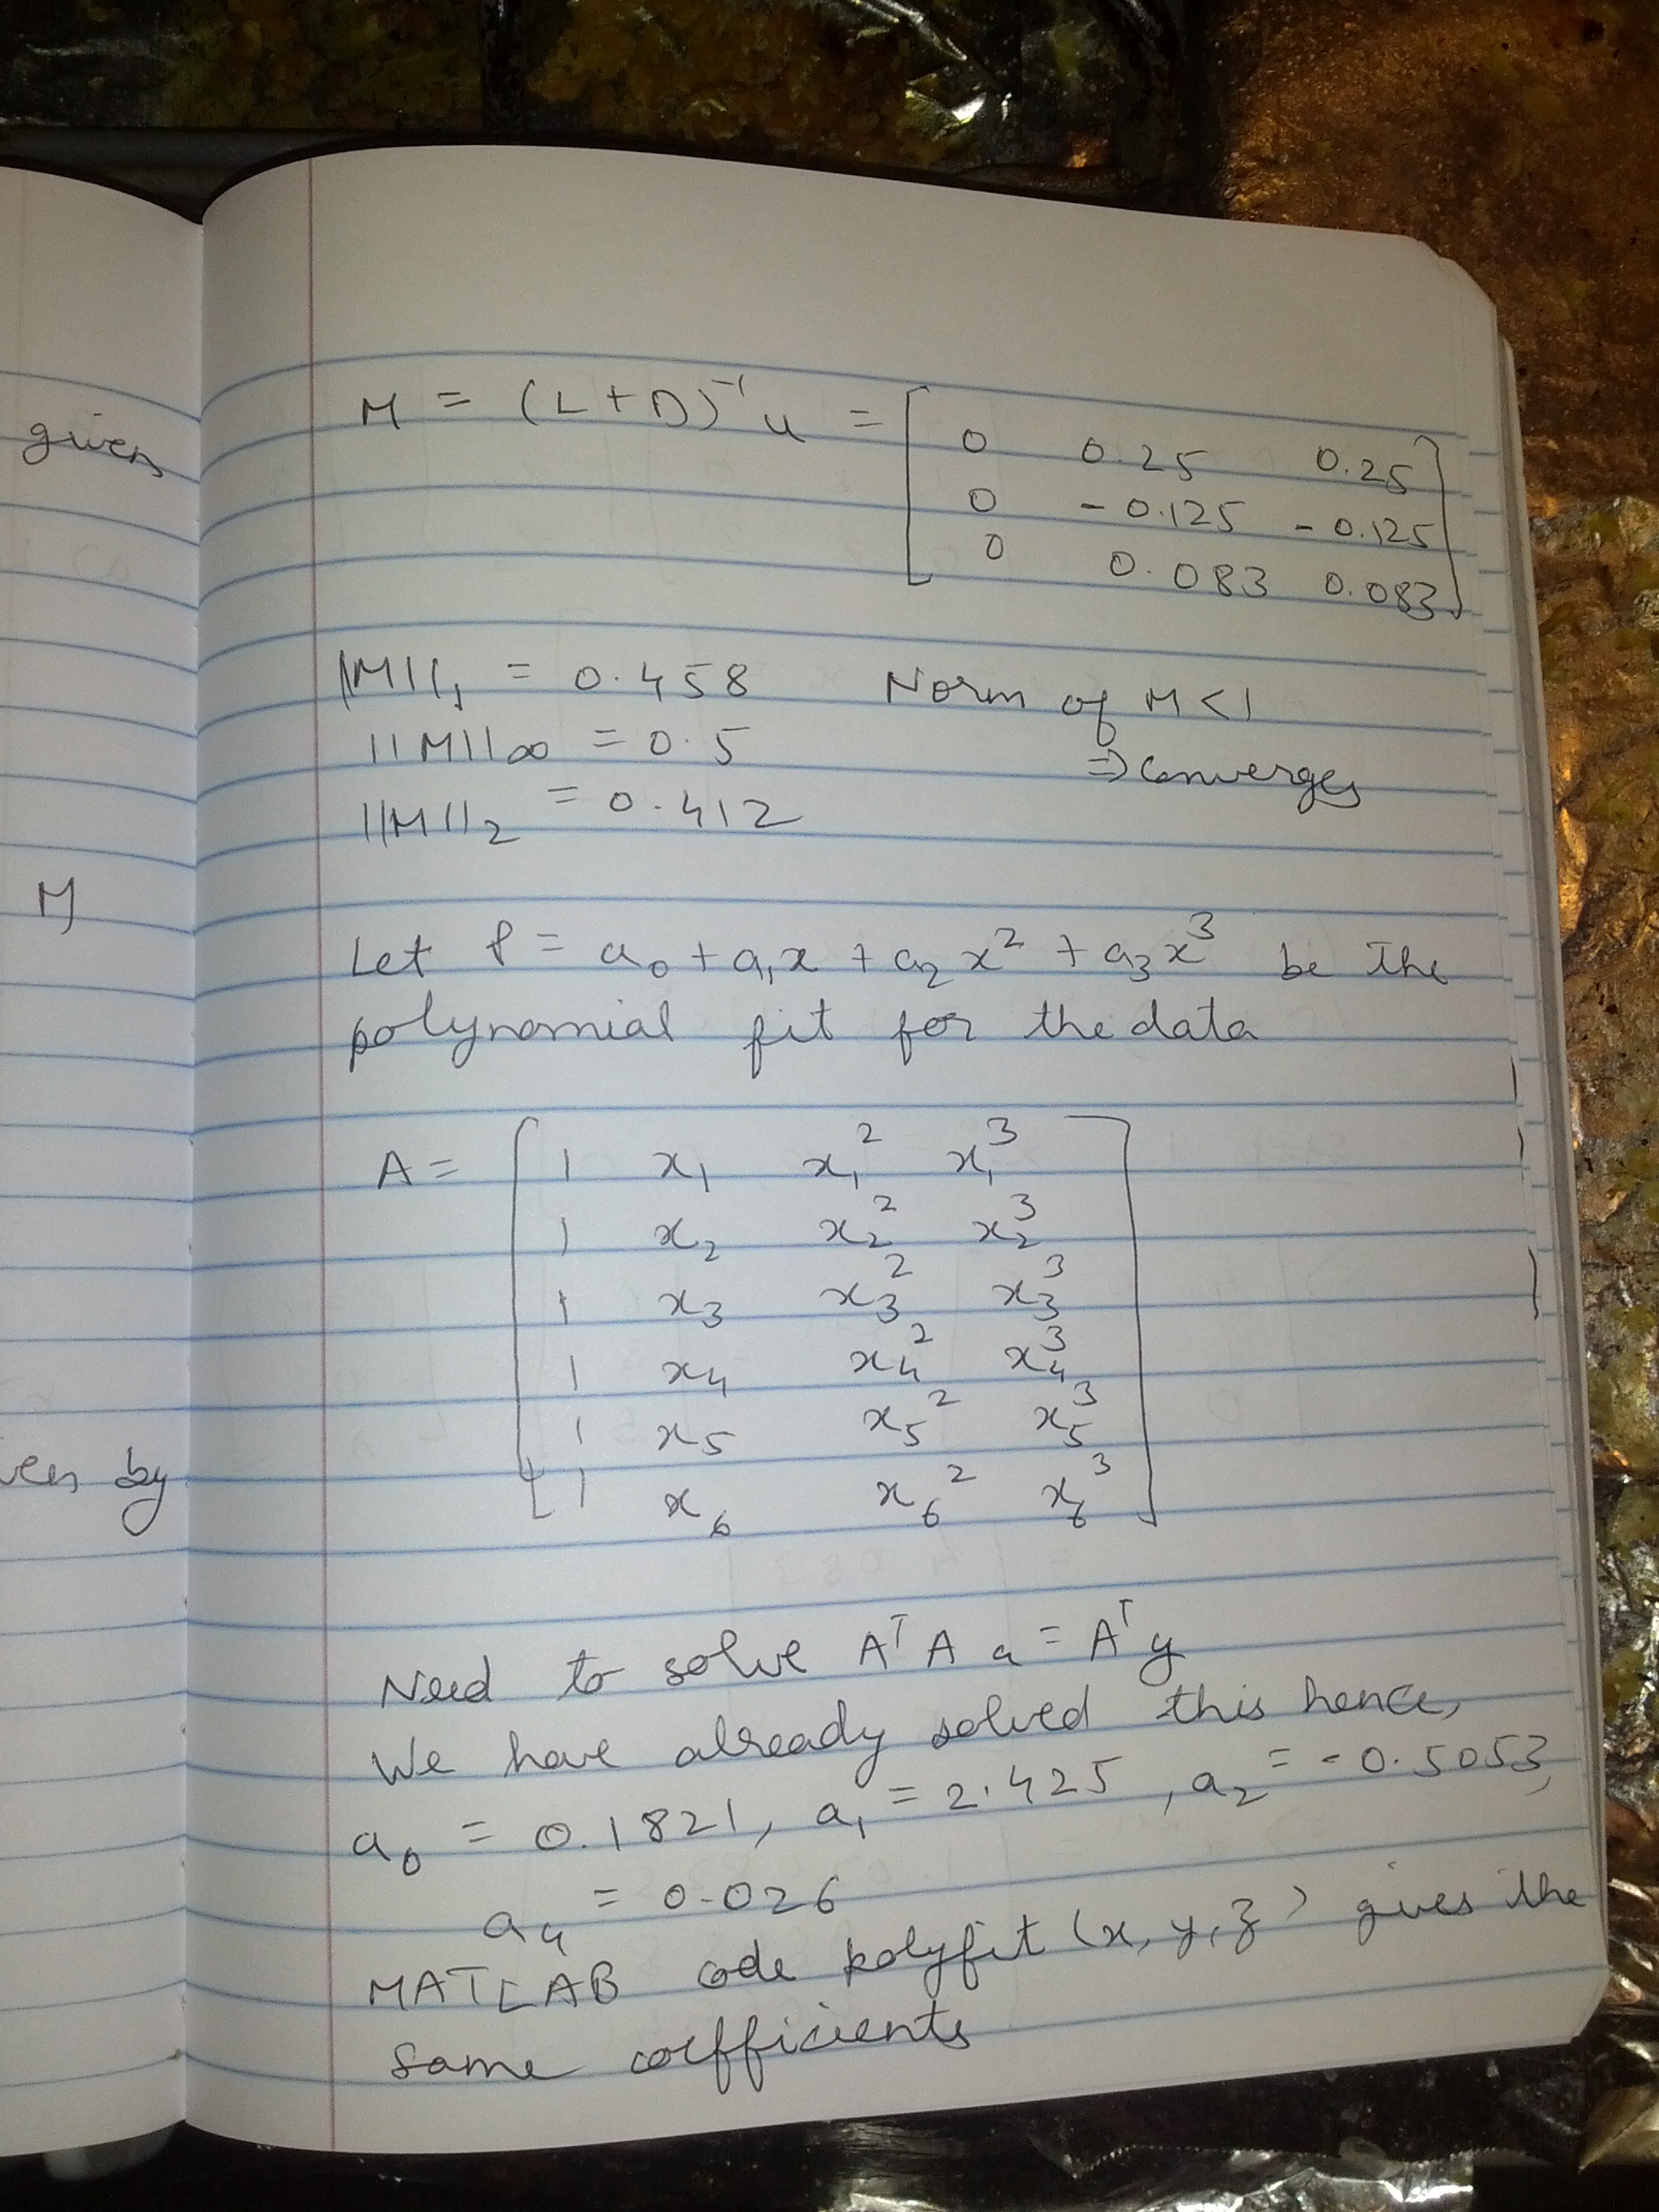 given
M
ven by
M = (L+D)⁻¹ u = [ 0 0.25 0.25
0 -0.125 -0.125
0 0.083 0.083 ]
||M||₁ = 0.458 Norm of M < 1
||M||∞ = 0.5 ⇒ Converges
||M||₂ = 0.412
Let P = a₀ + a₁x + a₂x² + a₃x³ be the
polynomial fit for the data
A = [ 1 x₁ x₁² x₁³
1 x₂ x₂² x₂³
1 x₃ x₃² x₃³
1 x₄ x₄² x₄³
1 x₅ x₅² x₅³
1 x₆ x₆² x₆³ ]
Need to solve AᵀA a = Aᵀy
We have already solved this hence,
a₀ = 0.1821, a₁ = 2.425, a₂ = -0.5053,
a₄ = 0.026
MATLAB code polyfit (x, y, 3) gives the
same coefficients